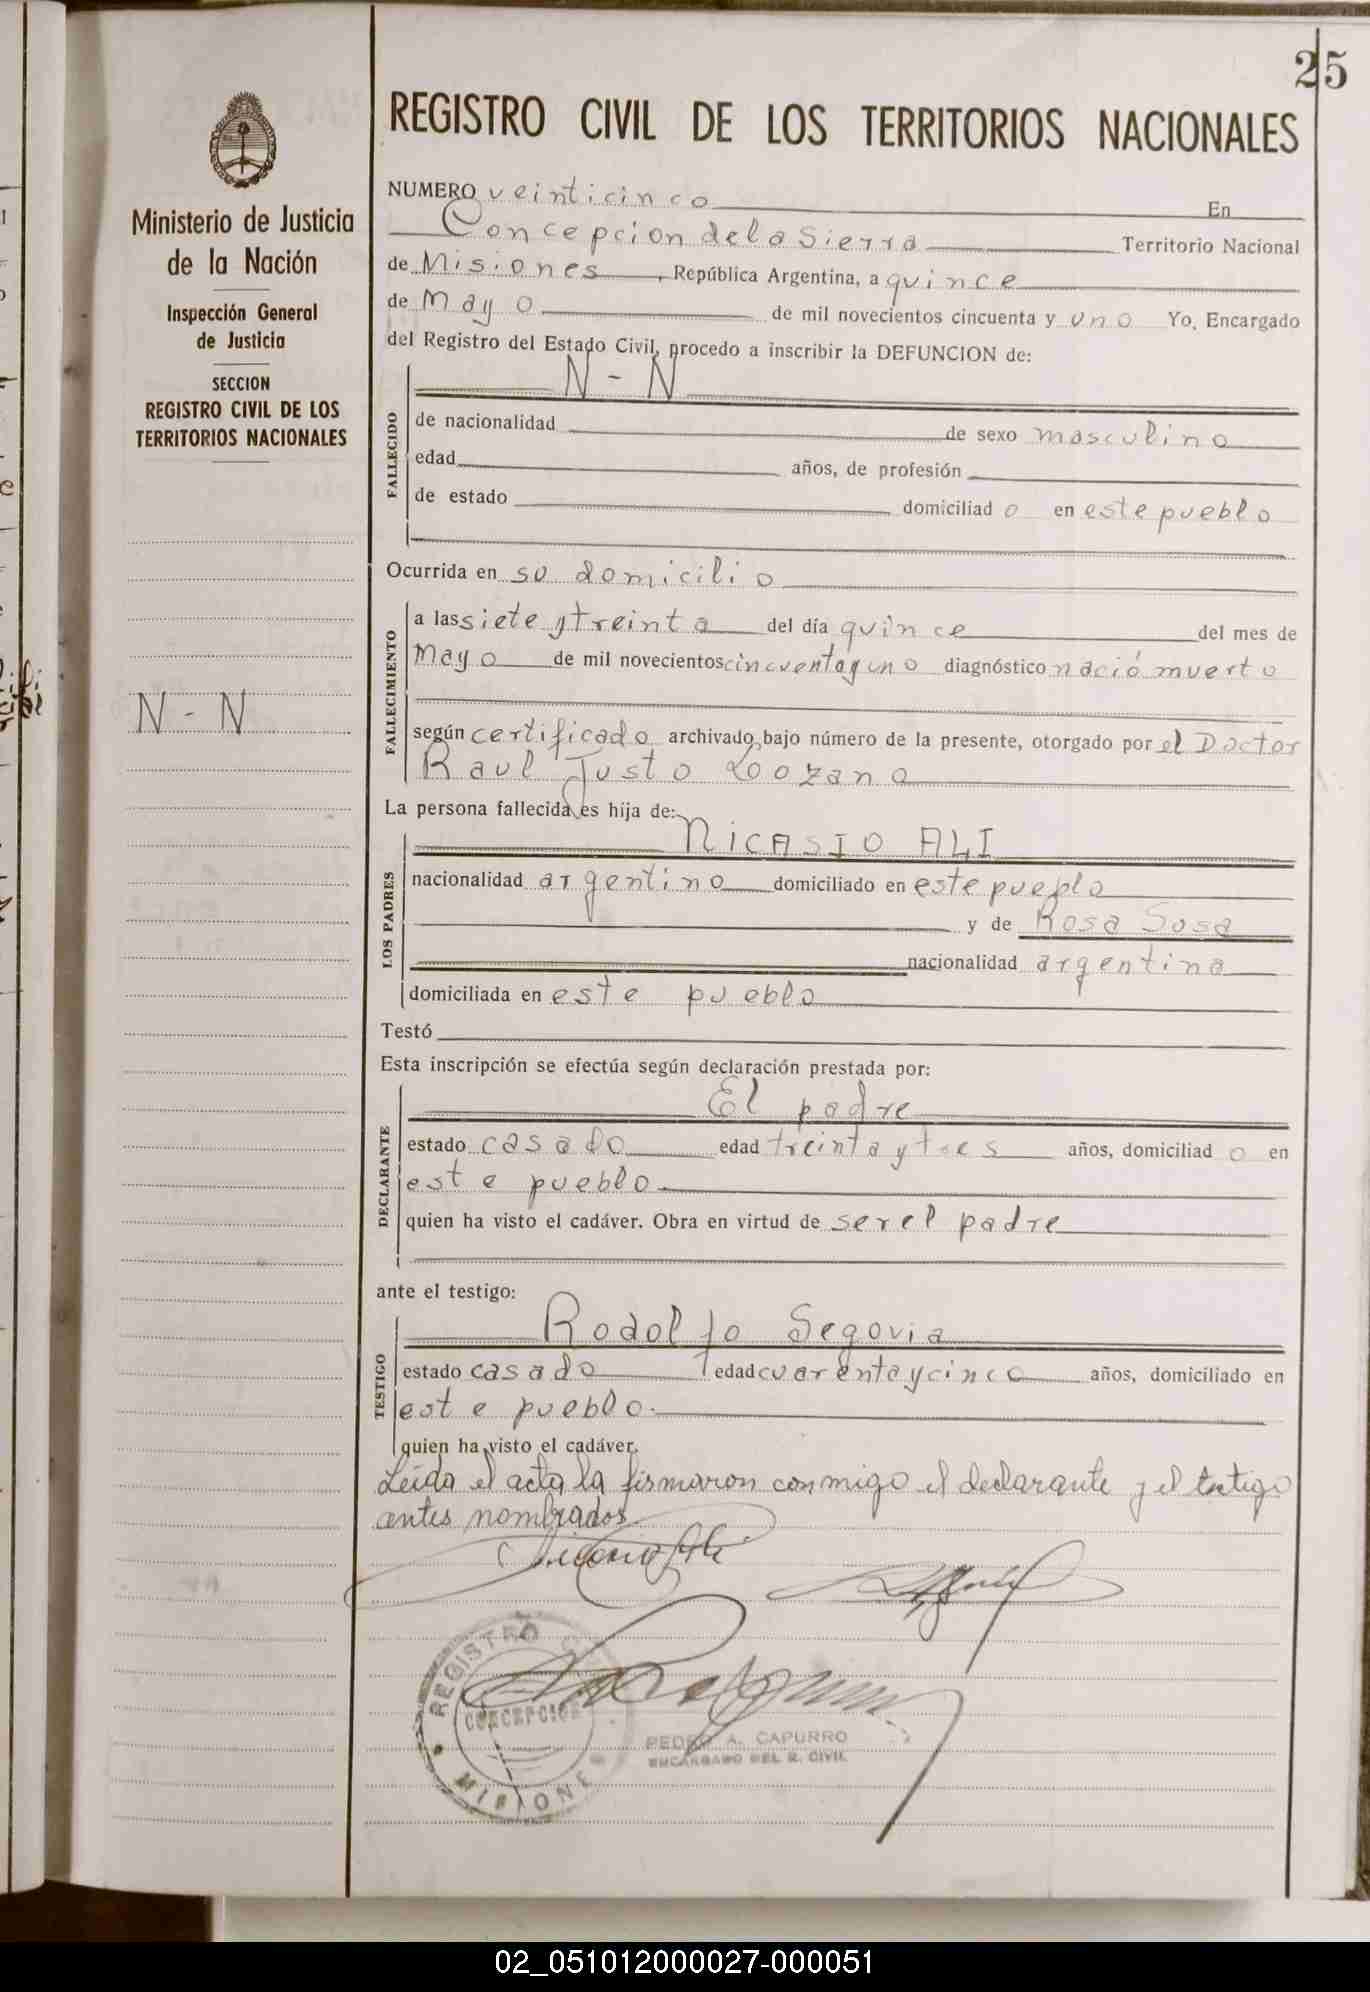 25
REGISTRO CIVIL DE LOS TERRITORIOS NACIONALES
Ministerio de Justicia
de la Nación
Inspección General
de Justicia
SECCION
REGISTRO CIVIL DE LOS
TERRITORIOS NACIONALES
N - N
NUMERO veinticinco En
Concepcion de la Sierra Territorio Nacional
de Misiones, República Argentina, a quince
de Mayo de mil novecientos cincuenta y uno Yo, Encargado
del Registro del Estado Civil, procedo a inscribir la DEFUNCION de:
N - N
FALLECIDO
de nacionalidad de sexo masculino
edad años, de profesión
de estado domiciliad o en este pueblo
Ocurrida en su domicilio
FALLECIMIENTO
a las siete y treinta del día quince del mes de
Mayo de mil novecientos cincuenta y uno diagnóstico nació muerto
según certificado archivado bajo número de la presente, otorgado por el Doctor
Raul Justo Loozano
La persona fallecida es hija de:
LOS PADRES
NICASIO ALI
nacionalidad argentino domiciliado en este pueblo
y de Rosa Sosa
nacionalidad argentina
domiciliada en este pueblo
Testó
Esta inscripción se efectúa según declaración prestada por:
DECLARANTE
El padre
estado casado edad treinta y tres años, domiciliad o en
este pueblo
quien ha visto el cadáver. Obra en virtud de ser el padre
ante el testigo:
TESTIGO
Rodolfo Segovia
estado casado edad cuarenta y cinco años, domiciliado en
este pueblo.
quien ha visto el cadáver.
Leida el acta la firmaron conmigo el declarante y el testigo
antes nombrados
Nicasio Ali
REGISTRO
CONCEPCION
MISIONES
PEDRO A. CAPURRO
ENCARGADO DEL R. CIVIL
02_051012000027-000051